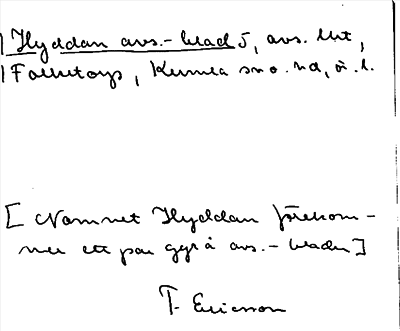 Hyddan avs.-blad 5, avs. lht,
Falletorp, Kumla sn o. hd, ö. l.
[Namnet Hyddan förekom-
mer ett par ggr å avs.-bladen]
T. Ericsson